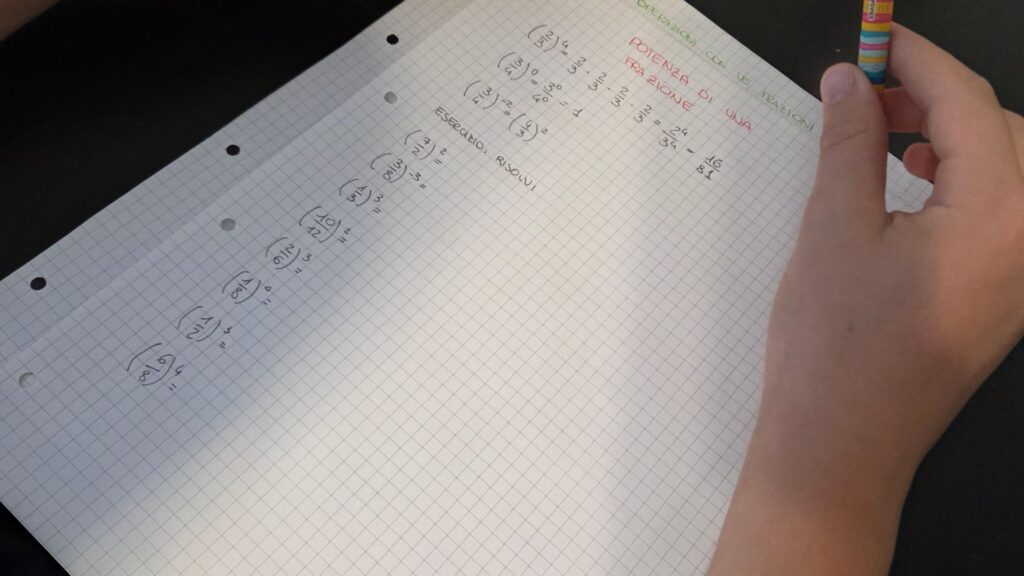 OPERAZIONI CON LE FRAZIONI
POTENZA DI UNA
FRAZIONE
(2/3)^4 = 2/3 · 2/3 · 2/3 · 2/3 = 2^4/3^4 = 16/81
(3/4)^0 = 3^0/4^0 = 1
(3/4)^-2 = (4/3)^2
ESERCIZIO: RISOLVI
(7/2)^2 =
(3/8)^-3 =
(1/3)^3 =
(10/12)^2 =
(2/6)^3 =
(1/8)^0 =
(1/2)^3 =
(6/8)^4 =